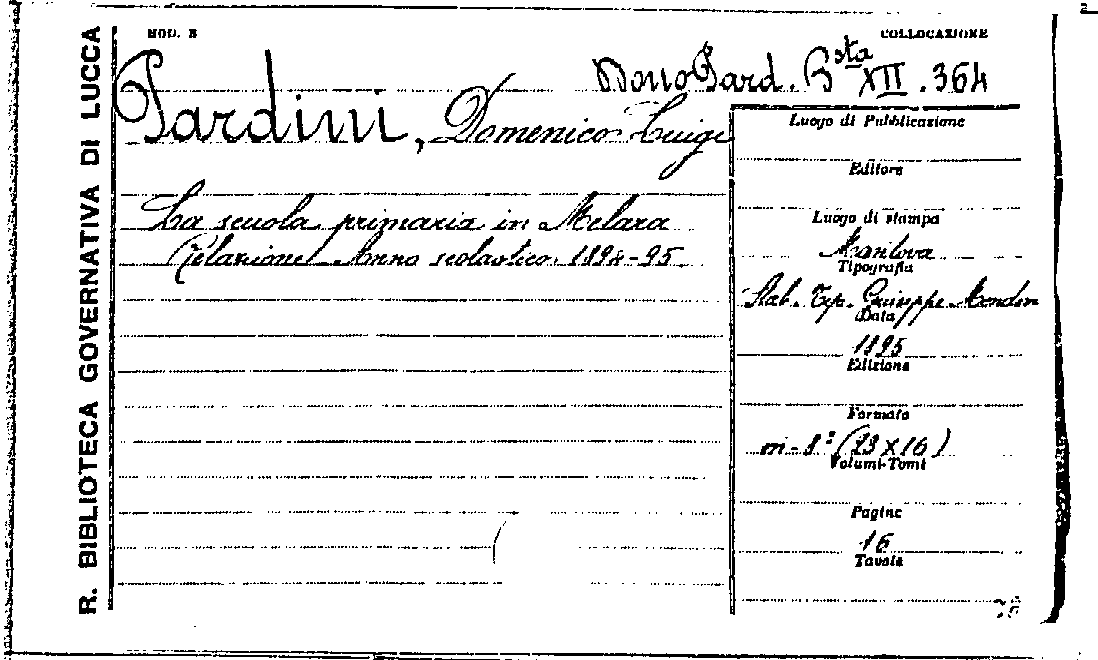 R. BIBLIOTECA GOVERNATIVA DI LUCCA
MOD. B
COLLOCAZIONE
Dono Pard. Bsta XII. 364
Pardini, Domenico Luigi
La scuola primaria in Melara
Relazione Anno scolastico 1894-95
Luogo di Pubblicazione
Editore
Luogo di stampa
Mantova
Tipografia
Stab. Tip. Giuseppe Mondovi
Data
1895
Edizione
Formato
in-8º (23x16)
Volumi-Tomi
Pagine
16
Tavole